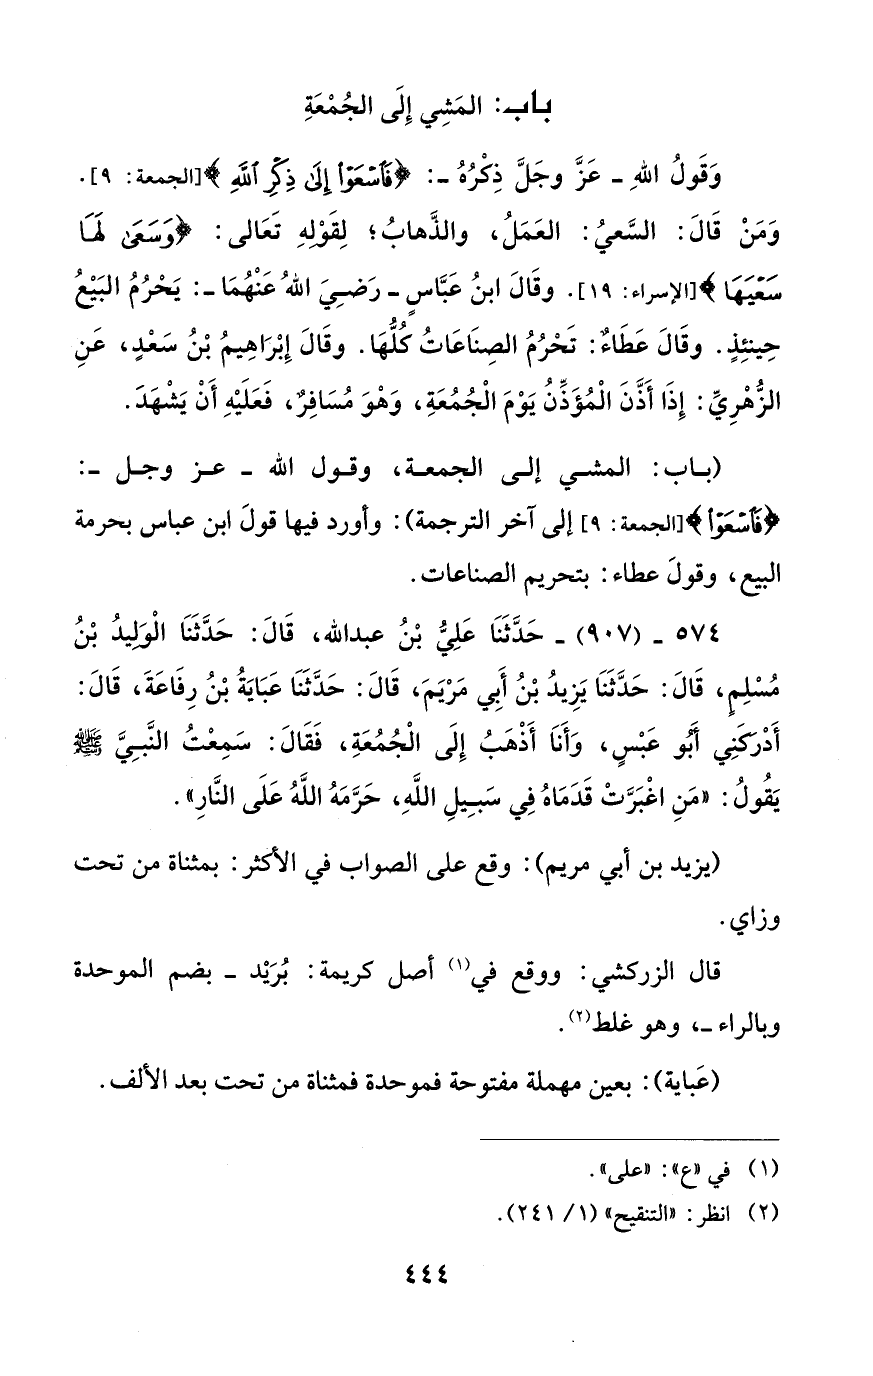 باب: المَشِي إِلَى الجُمْعَةِ
وَقَولُ اللهِ ـ عَزَّ وجَلَّ ذِكْرُهُ ـ: ﴿فَٱسْعَوْا۟ إِلَىٰ ذِكْرِ ٱللَّهِ﴾[الجمعة: ٩].
وَمَنْ قَالَ: السَّعيُ: العَمَلُ، والذَّهابُ؛ لِقَوْلِهِ تَعَالى: ﴿وَسَعَىٰ لَهَا
سَعْيَهَا﴾[الإسراء: ١٩]. وقَالَ ابنُ عَبَّاسٍ ـ رَضِيَ اللهُ عَنْهُمَا ـ: يَحْرُمُ البَيْعُ
حِينئِذٍ. وقَالَ عَطَاءٌ: تَحْرُمُ الصِنَاعَاتُ كُلُّهَا. وقَالَ إِبْرَاهِيمُ بْنُ سَعْدٍ، عَنِ
الزُّهْرِيِّ: إِذَا أَذَّنَ الْمُؤَذِّنُ يَوْمَ الْجُمُعَةِ، وَهْوَ مُسَافِرٌ، فَعَلَيْهِ أَنْ يَشْهَدَ.
(باب: المشي إلى الجمعة، وقول الله ـ عز وجل ـ:
﴿فَٱسْعَوْا۟﴾[الجمعة: ٩] إلى آخر الترجمة): وأورد فيها قولَ ابن عباس بحرمة
البيع، وقولَ عطاء: بتحريم الصناعات.
٥٧٤ ـ (٩٠٧) ـ حَدَّثَنَا عَلِيُّ بْنُ عبدالله، قَالَ: حَدَّثَنَا الْوَلِيدُ بْنُ
مُسْلِمٍ، قَالَ: حَدَّثَنَا يَزِيدُ بْنُ أَبِي مَرْيَمَ، قَالَ: حَدَّثَنَا عَبَايَةُ بْنُ رِفَاعَةَ، قَالَ:
أَدْرَكَنِي أَبُو عَبْسٍ، وَأَنَا أَذْهَبُ إِلَى الْجُمُعَةِ، فَقَالَ: سَمِعْتُ النَّبِيَّ ﷺ
يَقُولُ: «مَنِ اغْبَرَّتْ قَدَمَاهُ فِي سَبِيلِ اللَّهِ، حَرَّمَهُ اللَّهُ عَلَى النَّارِ».
(يزيد بن أبي مريم): وقع على الصواب في الأكثر: بمثناة من تحت
وزاي.
قال الزركشي: ووقع في(١) أصل كريمة: بُرَيْد ـ بضم الموحدة
وبالراء ـ، وهو غلط(٢).
(عَباية): بعين مهملة مفتوحة فموحدة فمثناة من تحت بعد الألف.
(١) في «ع»: «على».
(٢) انظر: «التنقيح» (١/ ٢٤١).
٤٤٤